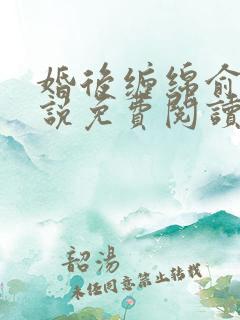 婚後纏綿俞
說免費閱讀
韶湯
未任同意禁止轉載